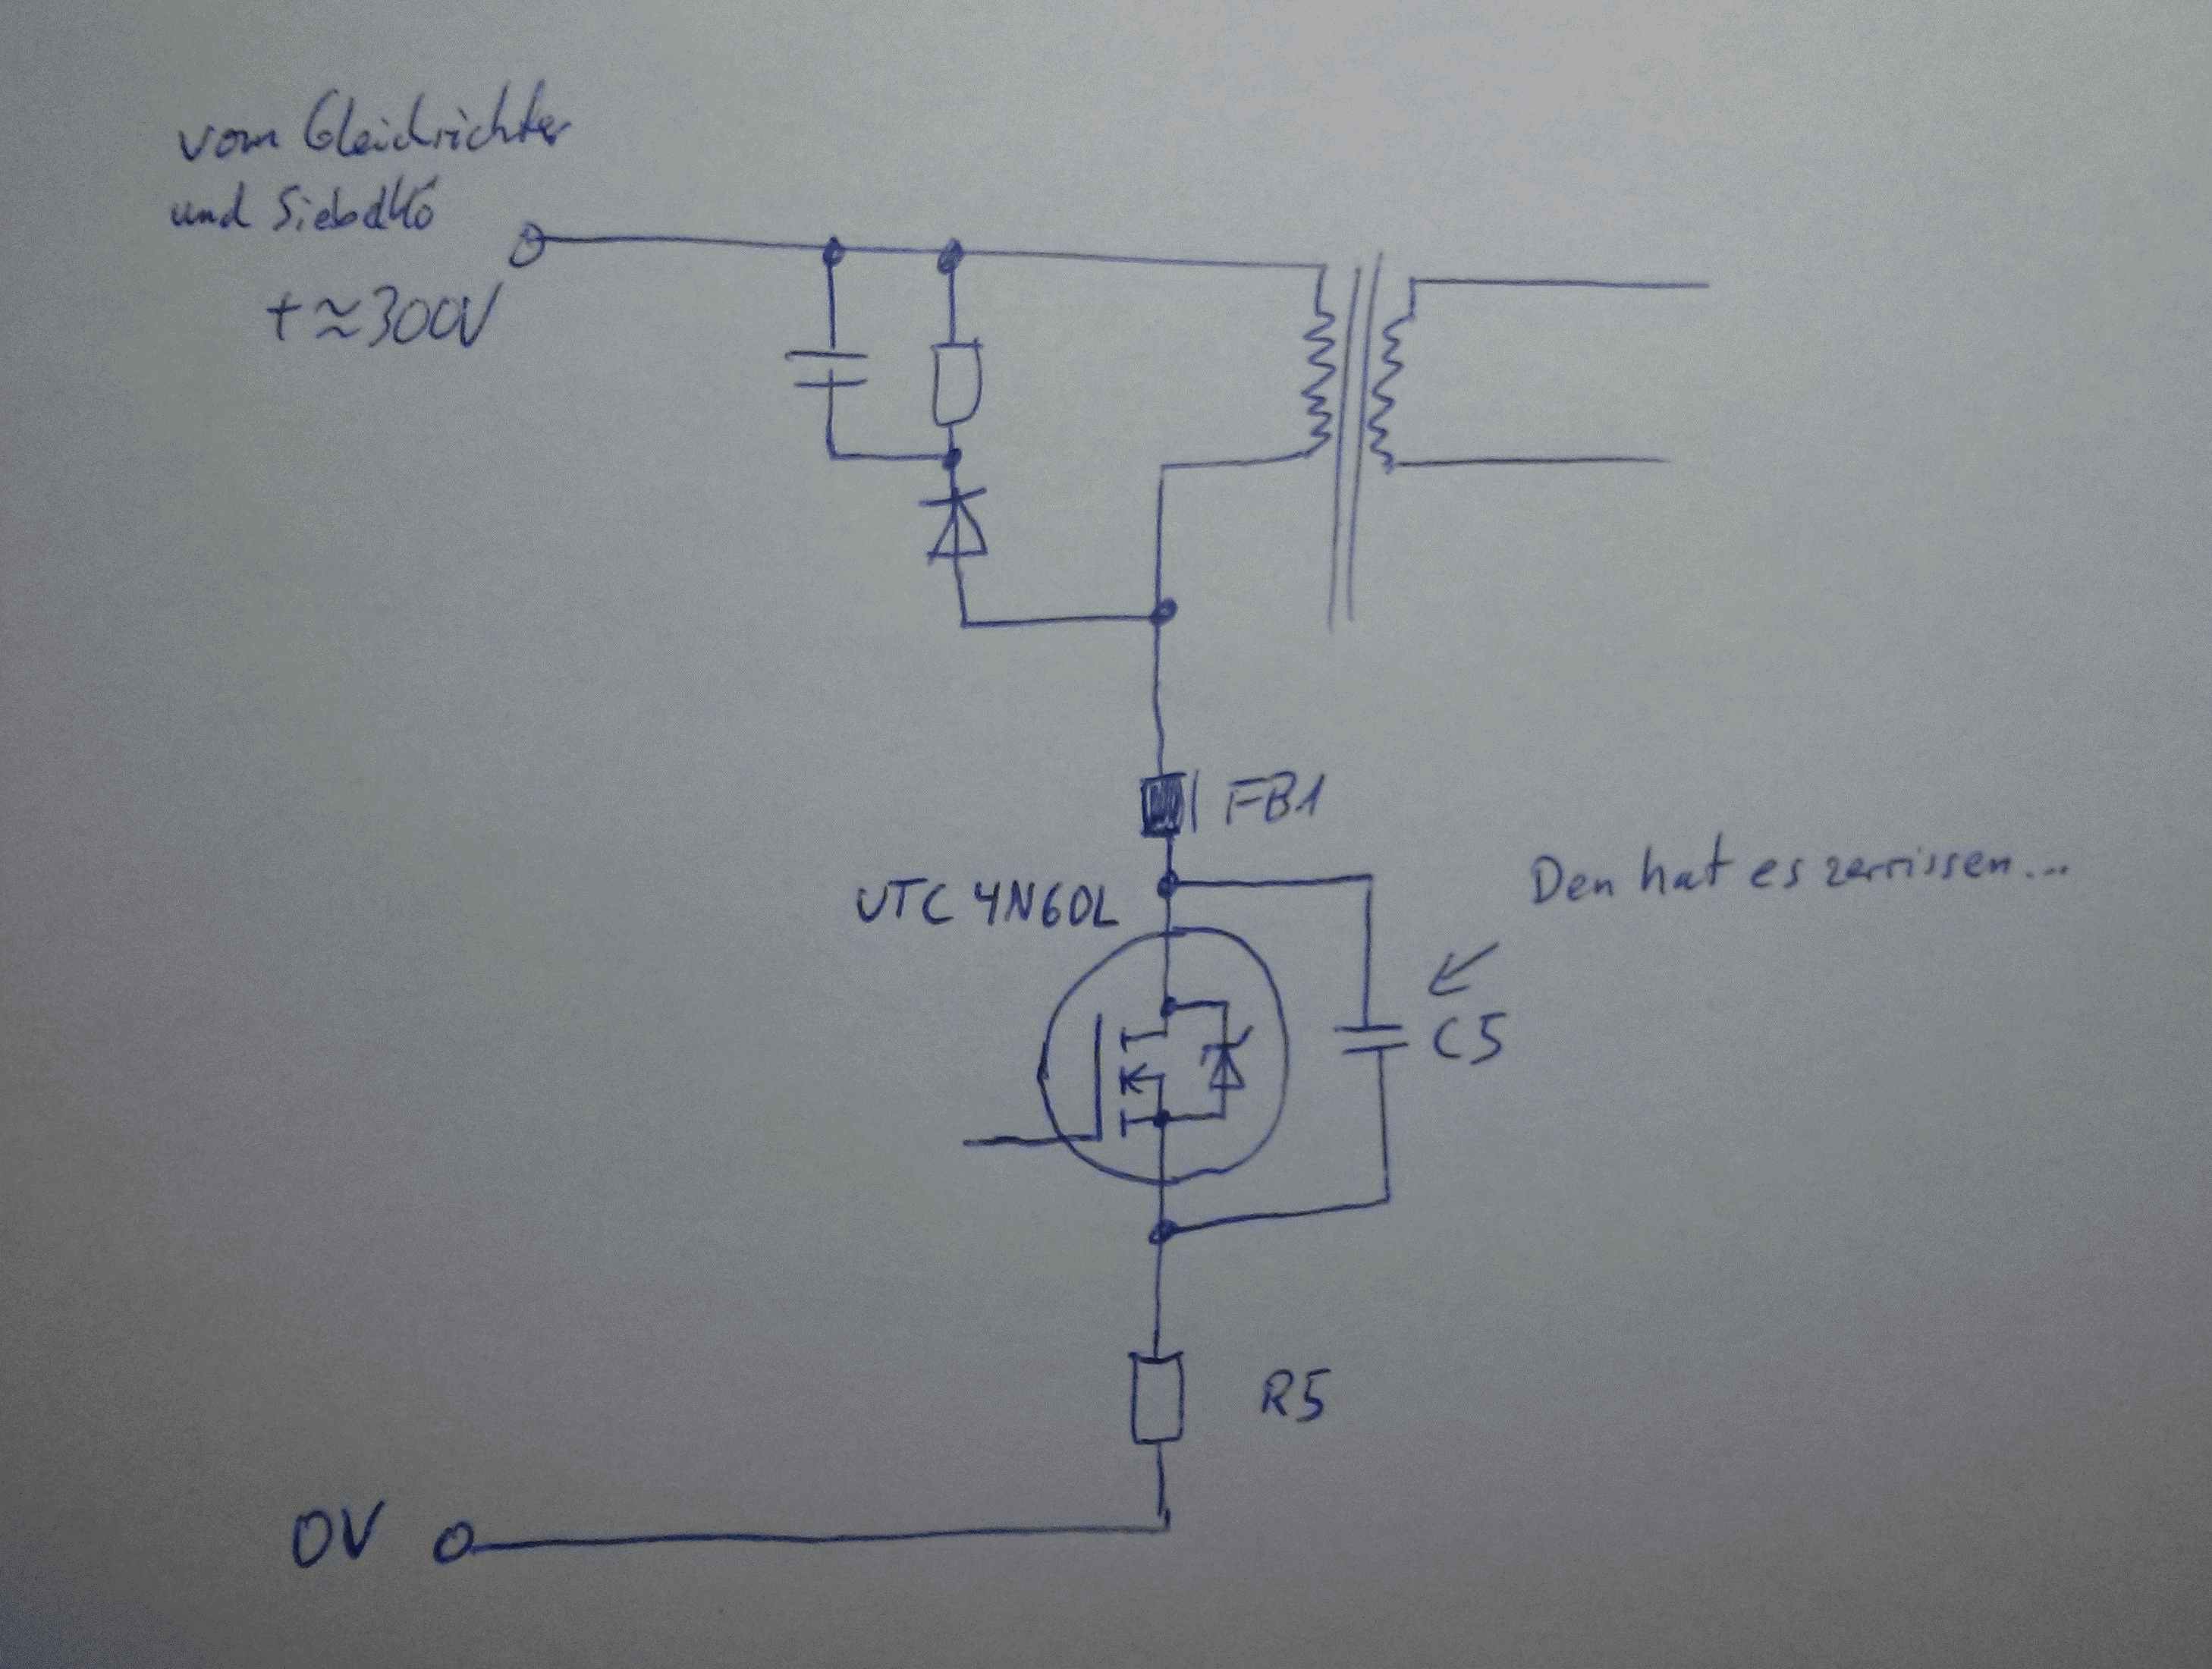 vom Gleichrichter
und Siebelko
+≈300V
FB1
UTC 4N60L
Den hat es zerrissen...
C5
R5
0V